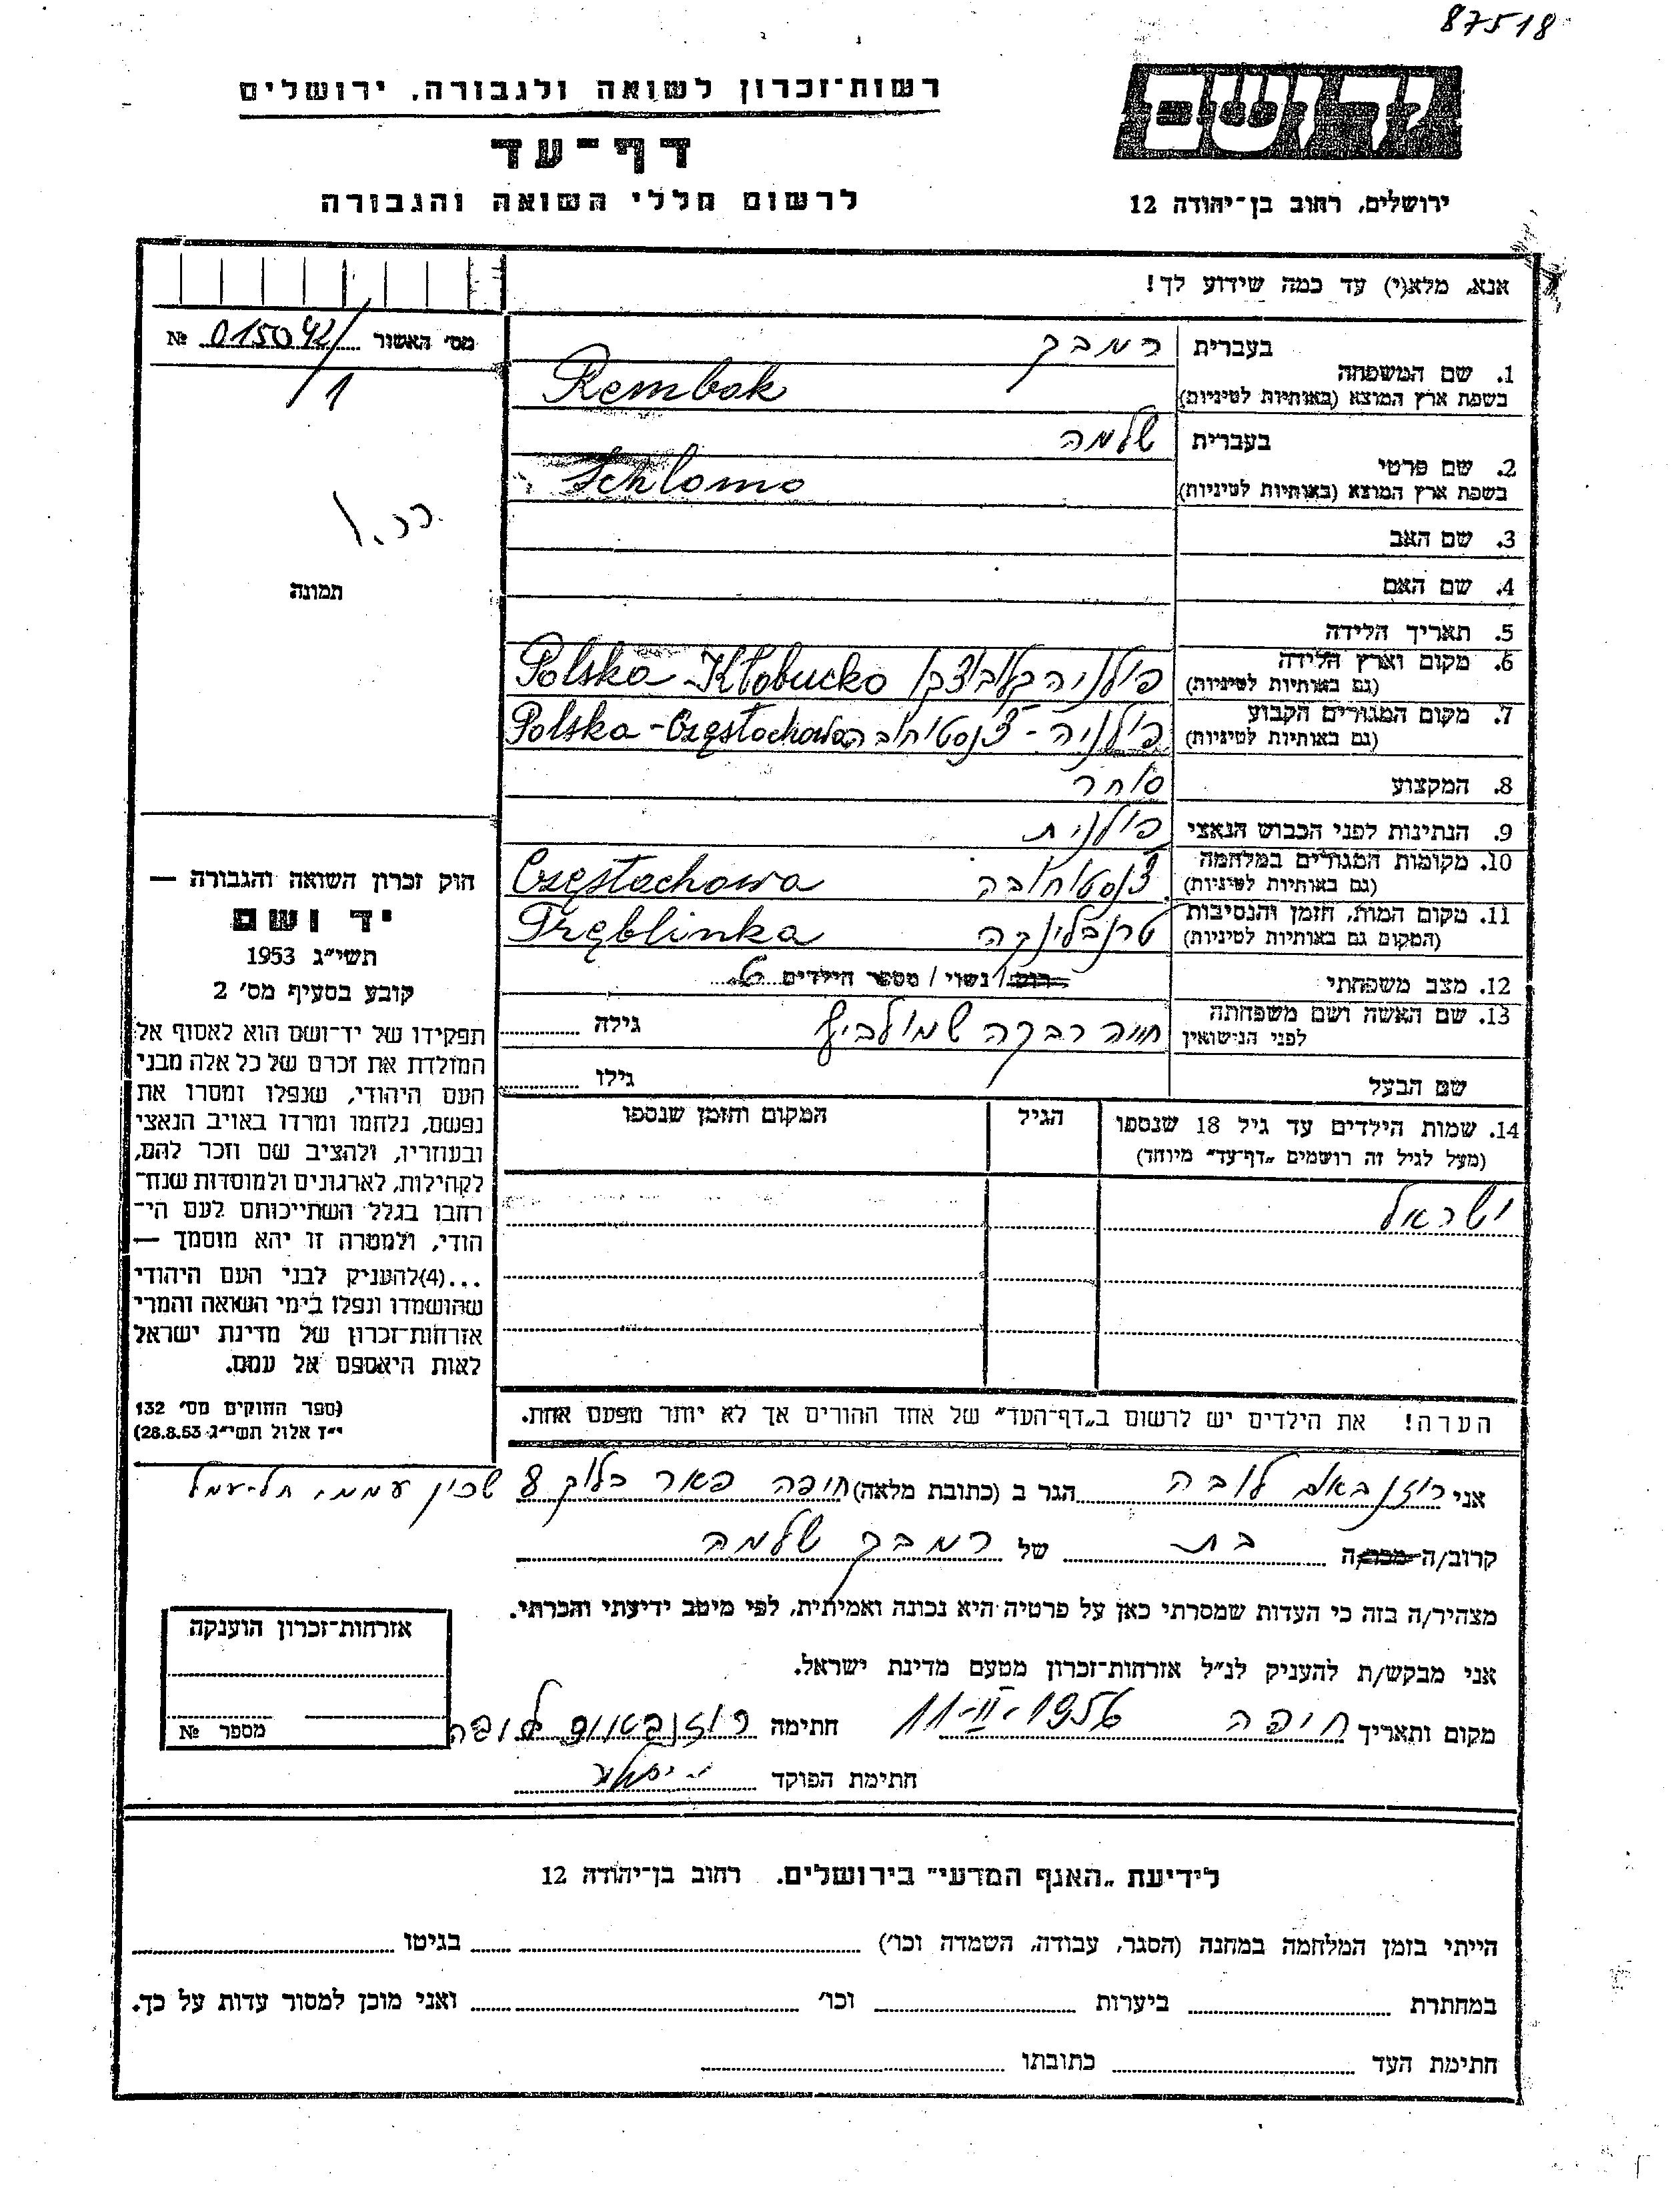 87518
רשות־זכרון לשואה ולגבורה. ירושלים
דף־עד
לרשום חללי השואה והגבורה
יד ושם
ירושלים, רחוב בן־יהודה 12
אנא, מלא(י) עד כמה שידוע לך!
מס׳ האשור 015042/1 №
1. שם המשפחה בעברית רמבק
בשפת ארץ המוצא (באותיות לטיניות) Rembak
2. שם פרטי בעברית שלמה
בשפת ארץ המוצא (באותיות לטיניות) Schlomo
3. שם האב
4. שם האם
5. תאריך הלידה
6. מקום וארץ הלידה פולניה קלובוצקו Polska - Kłobucko
(גם באותיות לטיניות)
7. מקום המגורים הקבוע פולניה - צ׳נסטוחובה Polska - Częstochowa
(גם באותיות לטיניות)
8. המקצוע סוחר
9. הנתינות לפני הכבוש הנאצי פולנית
10. מקומות המגורים במלחמה צ׳נסטוחובה Częstochowa
(גם באותיות לטיניות)
11. מקום המות, הזמן והנסיבות טרנבלינקה Tręblinka
(המקום גם באותיות לטיניות)
12. מצב משפחתי רוק / נשוי / מספר הילדים
13. שם האשה ושם משפחתה חיה רבקה שמולביץ גילה
לפני הנישואין
שם הבעל גילו
14. שמות הילדים עד גיל 18 שנספו הגיל המקום והזמן שנספו
(מעל לגיל זה רושמים „דף־עד" מיוחד)
ישראל
הערה! את הילדים יש לרשום ב„דף־העד" של אחד ההורים אך לא יותר מפעם אחת.
תמונה
חוק זכרון השואה והגבורה —
יד ושם
תשי״ג 1953
קובע בסעיף מס׳ 2
תפקידו של יד־ושם הוא לאסוף אל
המולדת את זכרם של כל אלה מבני
העם היהודי, שנפלו ומסרו את
נפשם, נלחמו ומרדו באויב הנאצי
ובעוזריו, ולהציב שם וזכר להם,
לקהילות, לארגונים ולמוסדות שנח־
רחבו בגלל השתייכותם לעם הי־
הודי, ולמטרה זו יהא מוסמך —
...(4)להעניק לבני העם היהודי
שהושמדו ונפלו בימי השואה והמרי
אזרחות־זכרון של מדינת ישראל
לאות היאספם אל עמם.
(ספר החוקים מס׳ 132
י״ז אלול תשי״ג 28.8.53)
אני רוזנבאום לובה הגר ב (כתובת מלאה) חיפה פאר בלוק 8 שכון עממי תל-עמל
קרוב/ה מכר/ה בת של רמבק שלמה
מצהיר/ה בזה כי העדות שמסרתי כאן על פרטיה היא נכונה ואמיתית, לפי מיטב ידיעתי והכרתי.
אני מבקש/ת להעניק לנ״ל אזרחות־זכרון מטעם מדינת ישראל.
מקום ותאריך חיפה 11-II-1956 חתימה רוזנבאום לובה
חתימת הפוקד
אזרחות־זכרון הוענקה
מספר №
לידיעת „האגף המדעי" בירושלים. רחוב בן־יהודה 12
הייתי בזמן המלחמה במחנה (הסגר, עבודה, השמדה וכו׳) בגיטו
במחתרת ביערות וכו׳ ואני מוכן למסור עדות על כך.
חתימת העד כתובתו